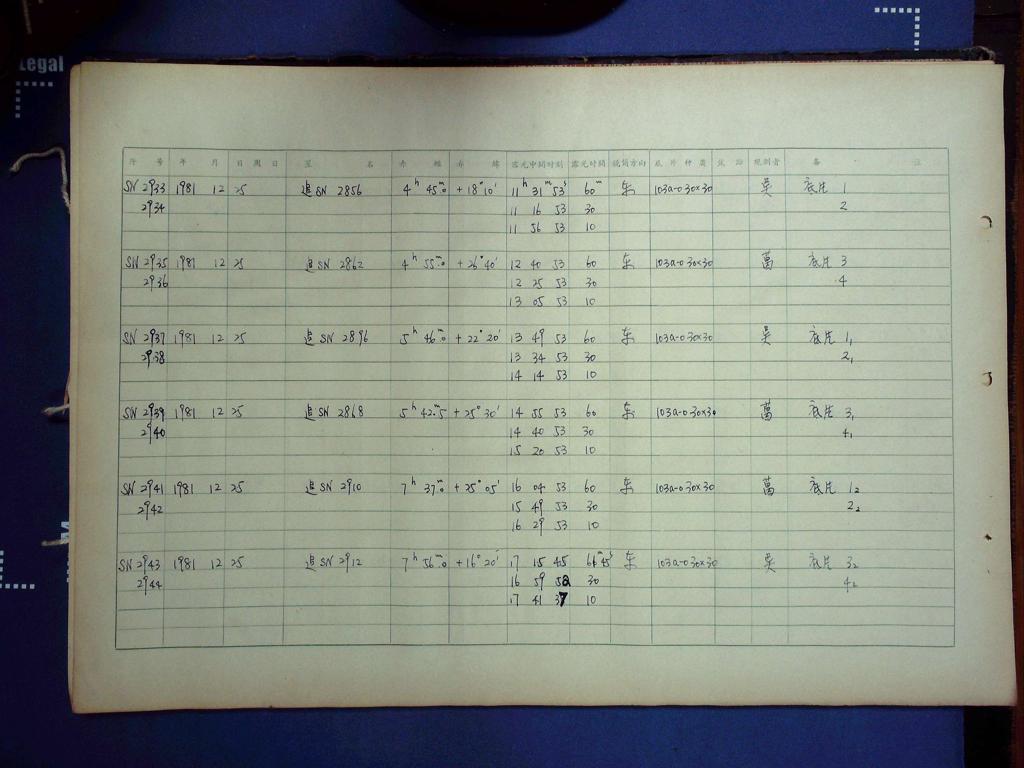 Legal
序 号 年 月 日 周 日 星 名 赤 經 赤 緯 露光中間时刻 露光时間 鏡筒方向 底 片 种 类 观測者 备 註
SN 2933 1981 12 25 追SN 2856 4h 45m.0 +18°10′ 11h 31m 53s 60m 东 103a-0 30×30 吴 底片 1
2934 11 16 53 30 2
11 56 53 10
SN 2935 1981 12 25 追SN 2862 4h 55m.0 +26°40′ 12 40 53 60 东 103a-0 30×30 萬 底片 3
2936 12 25 53 30 4
13 05 53 10
SN 2937 1981 12 25 追SN 2896 5h 46m.0 +22°20′ 13 49 53 60 东 103a-0 30×30 吴 底片 1₁
2938 13 34 53 30 2₁
14 14 53 10
SN 2939 1981 12 25 追SN 2868 5h 42m.5 +25°30′ 14 55 53 60 东 103a-0 30×30 萬 底片 3₁
2940 14 40 53 30 4₁
15 20 53 10
SN 2941 1981 12 25 追SN 2910 7h 37m.0 +25°05′ 16 04 53 60 东 103a-0 30×30 萬 底片 1₂
2942 15 49 53 30 2₂
16 29 53 10
SN 2943 1981 12 25 追SN 2912 7h 56m.0 +16°20′ 17 15 45 61m45s 东 103a-0 30×30 吴 底片 3₂
2944 16 59 52 30 4₂
17 41 37 10